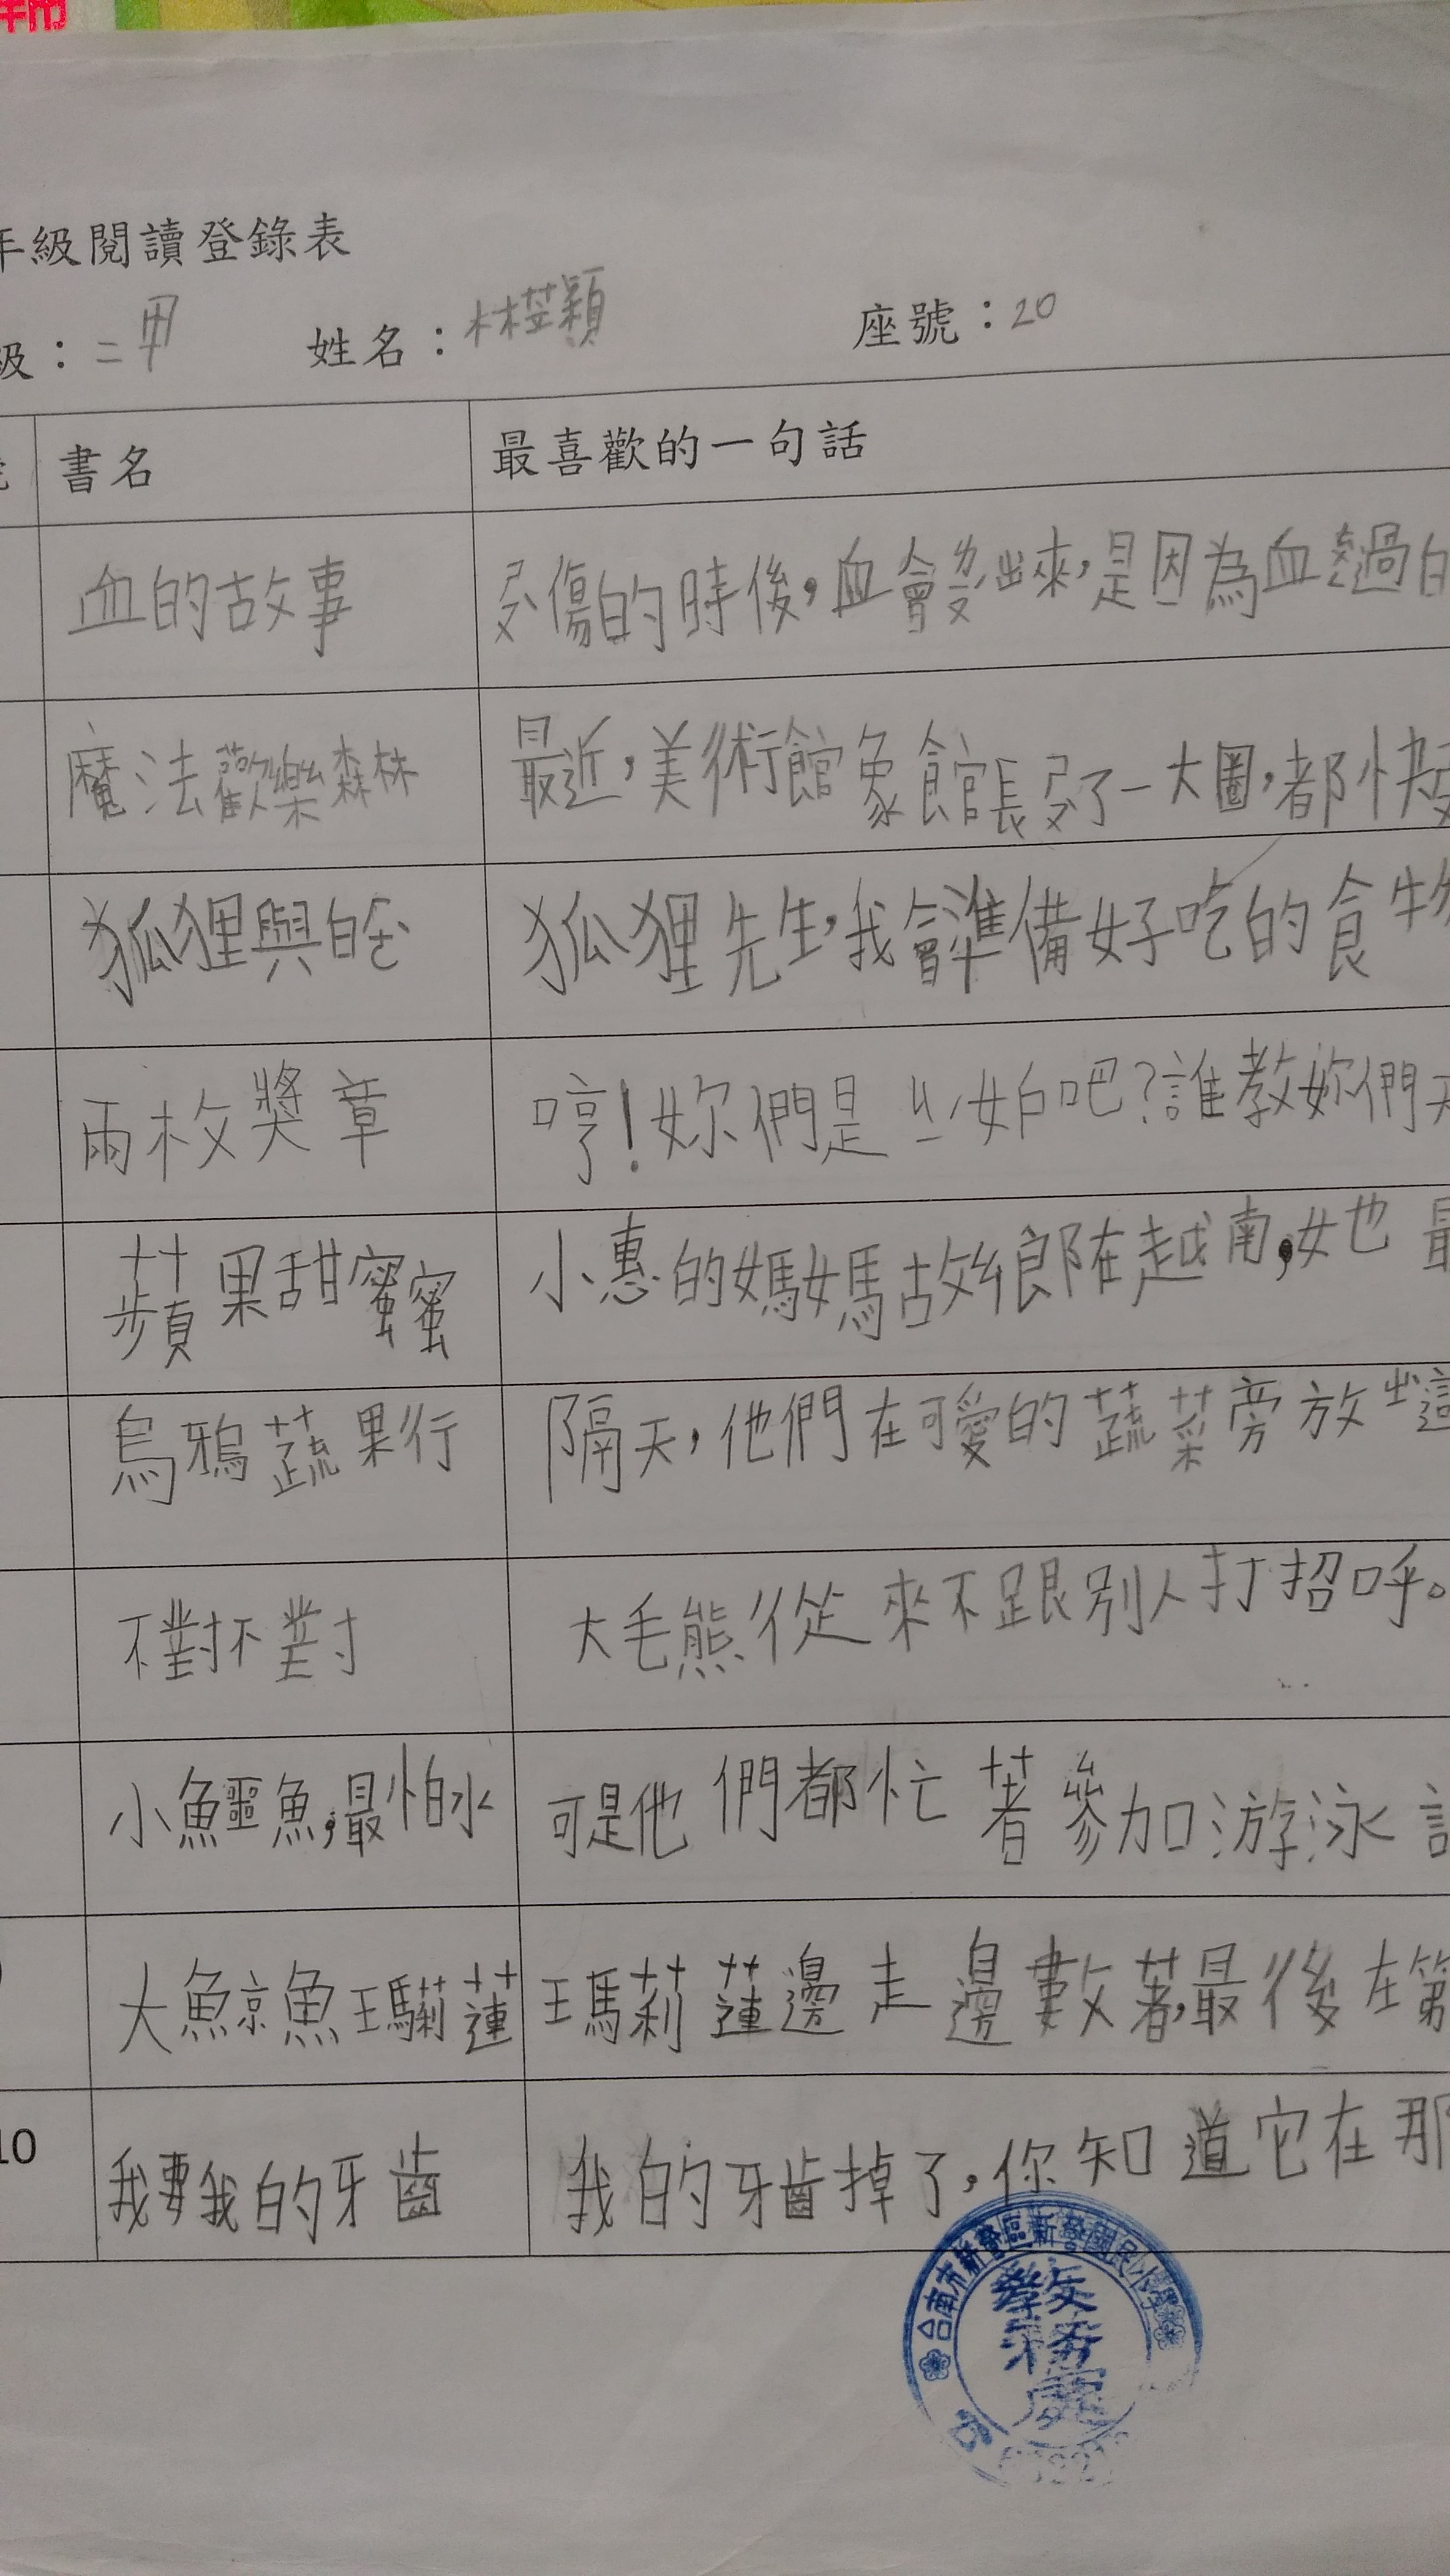 年級閱讀登錄表
級：二甲 姓名：林莛穎 座號：20
書名 最喜歡的一句話
血的故事 受傷的時後，血會ㄌㄡ出來，是因為血透過的
魔法歡樂森林 最近，美術館象館長受了一大圈，都快
狐狸與白 狐狸先生，我會準備好吃的食物
兩枚獎章 哼！妳們是 吧？誰教妳們
蘋果甜蜜蜜 小惠的媽媽故鄉在越南，她也最
烏鴉蔬果行 隔天，他們在可愛的蔬菜旁放出這
不對不對 大毛熊從來不跟別人打招呼。
小鱷魚，最怕水 可是他們都忙著參加游泳
大鯨魚瑪莉蓮 瑪莉蓮邊走邊數著，最後在第
10 我要我的牙齒 我的牙齒掉了，你知道它在那
台南市新營區新營國民小學
教務處